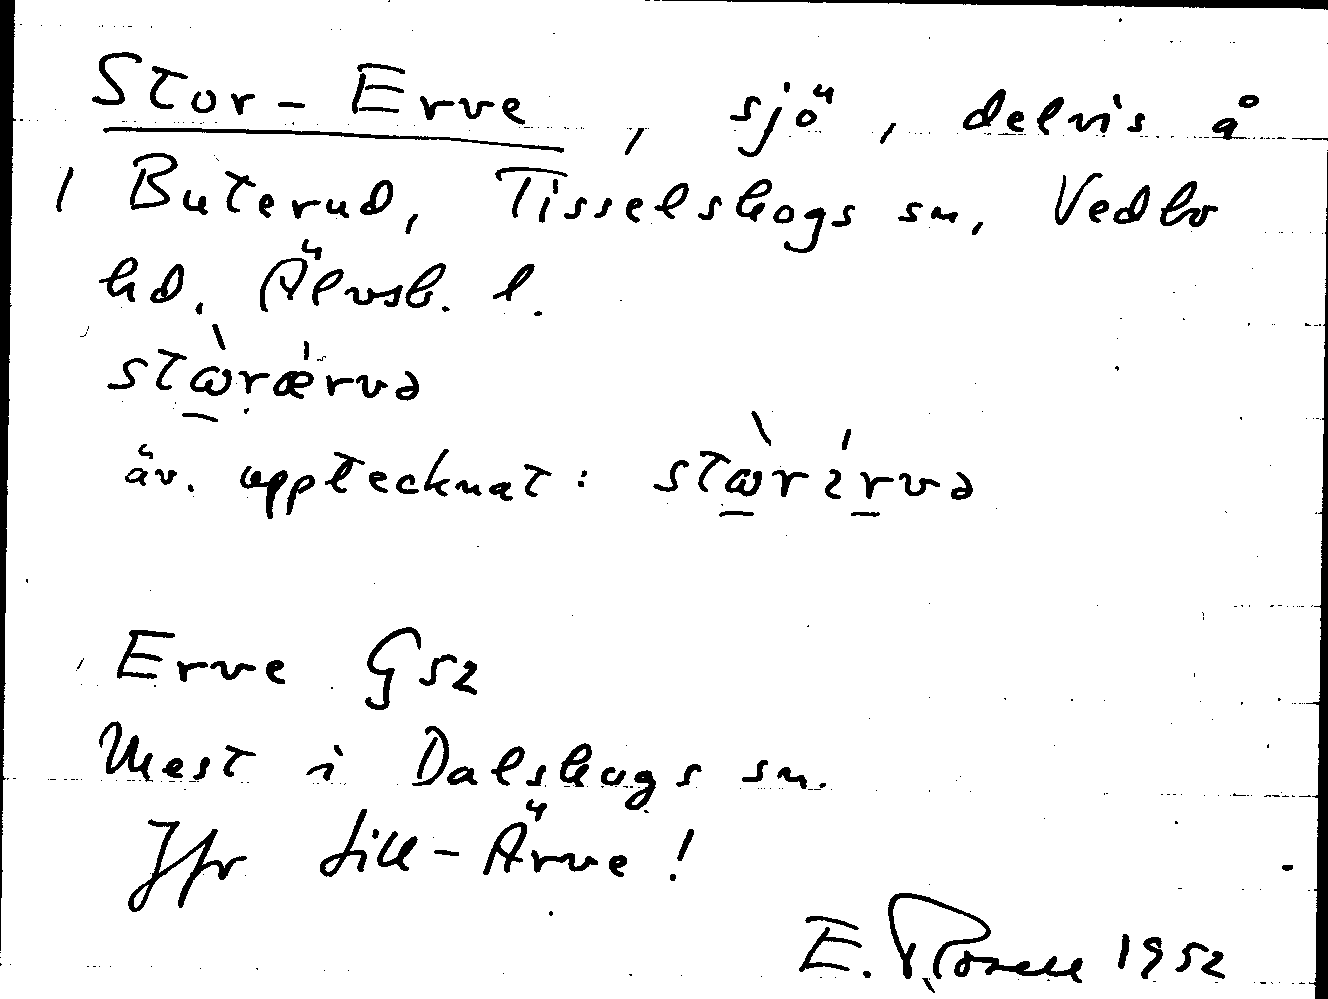 Stor-Erve, sjö, delvis å
1 Buterud, Tisselskogs sn, Vedbo
hd. Älvsb. l.
stὼrǽrvə
äv. upptecknat: stὼrírvə
Erve G52
Mest i Dalskogs sn.
Jfr Lill-Ärve!
E. Rosell 1952